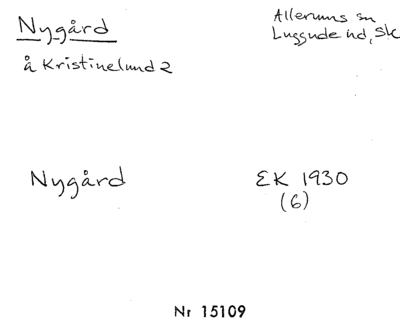 Nygård
Allerums sn
Luggude hd, Sk
å Kristinelund 2
Nygård
EK 1930
(6)
Nr 15109